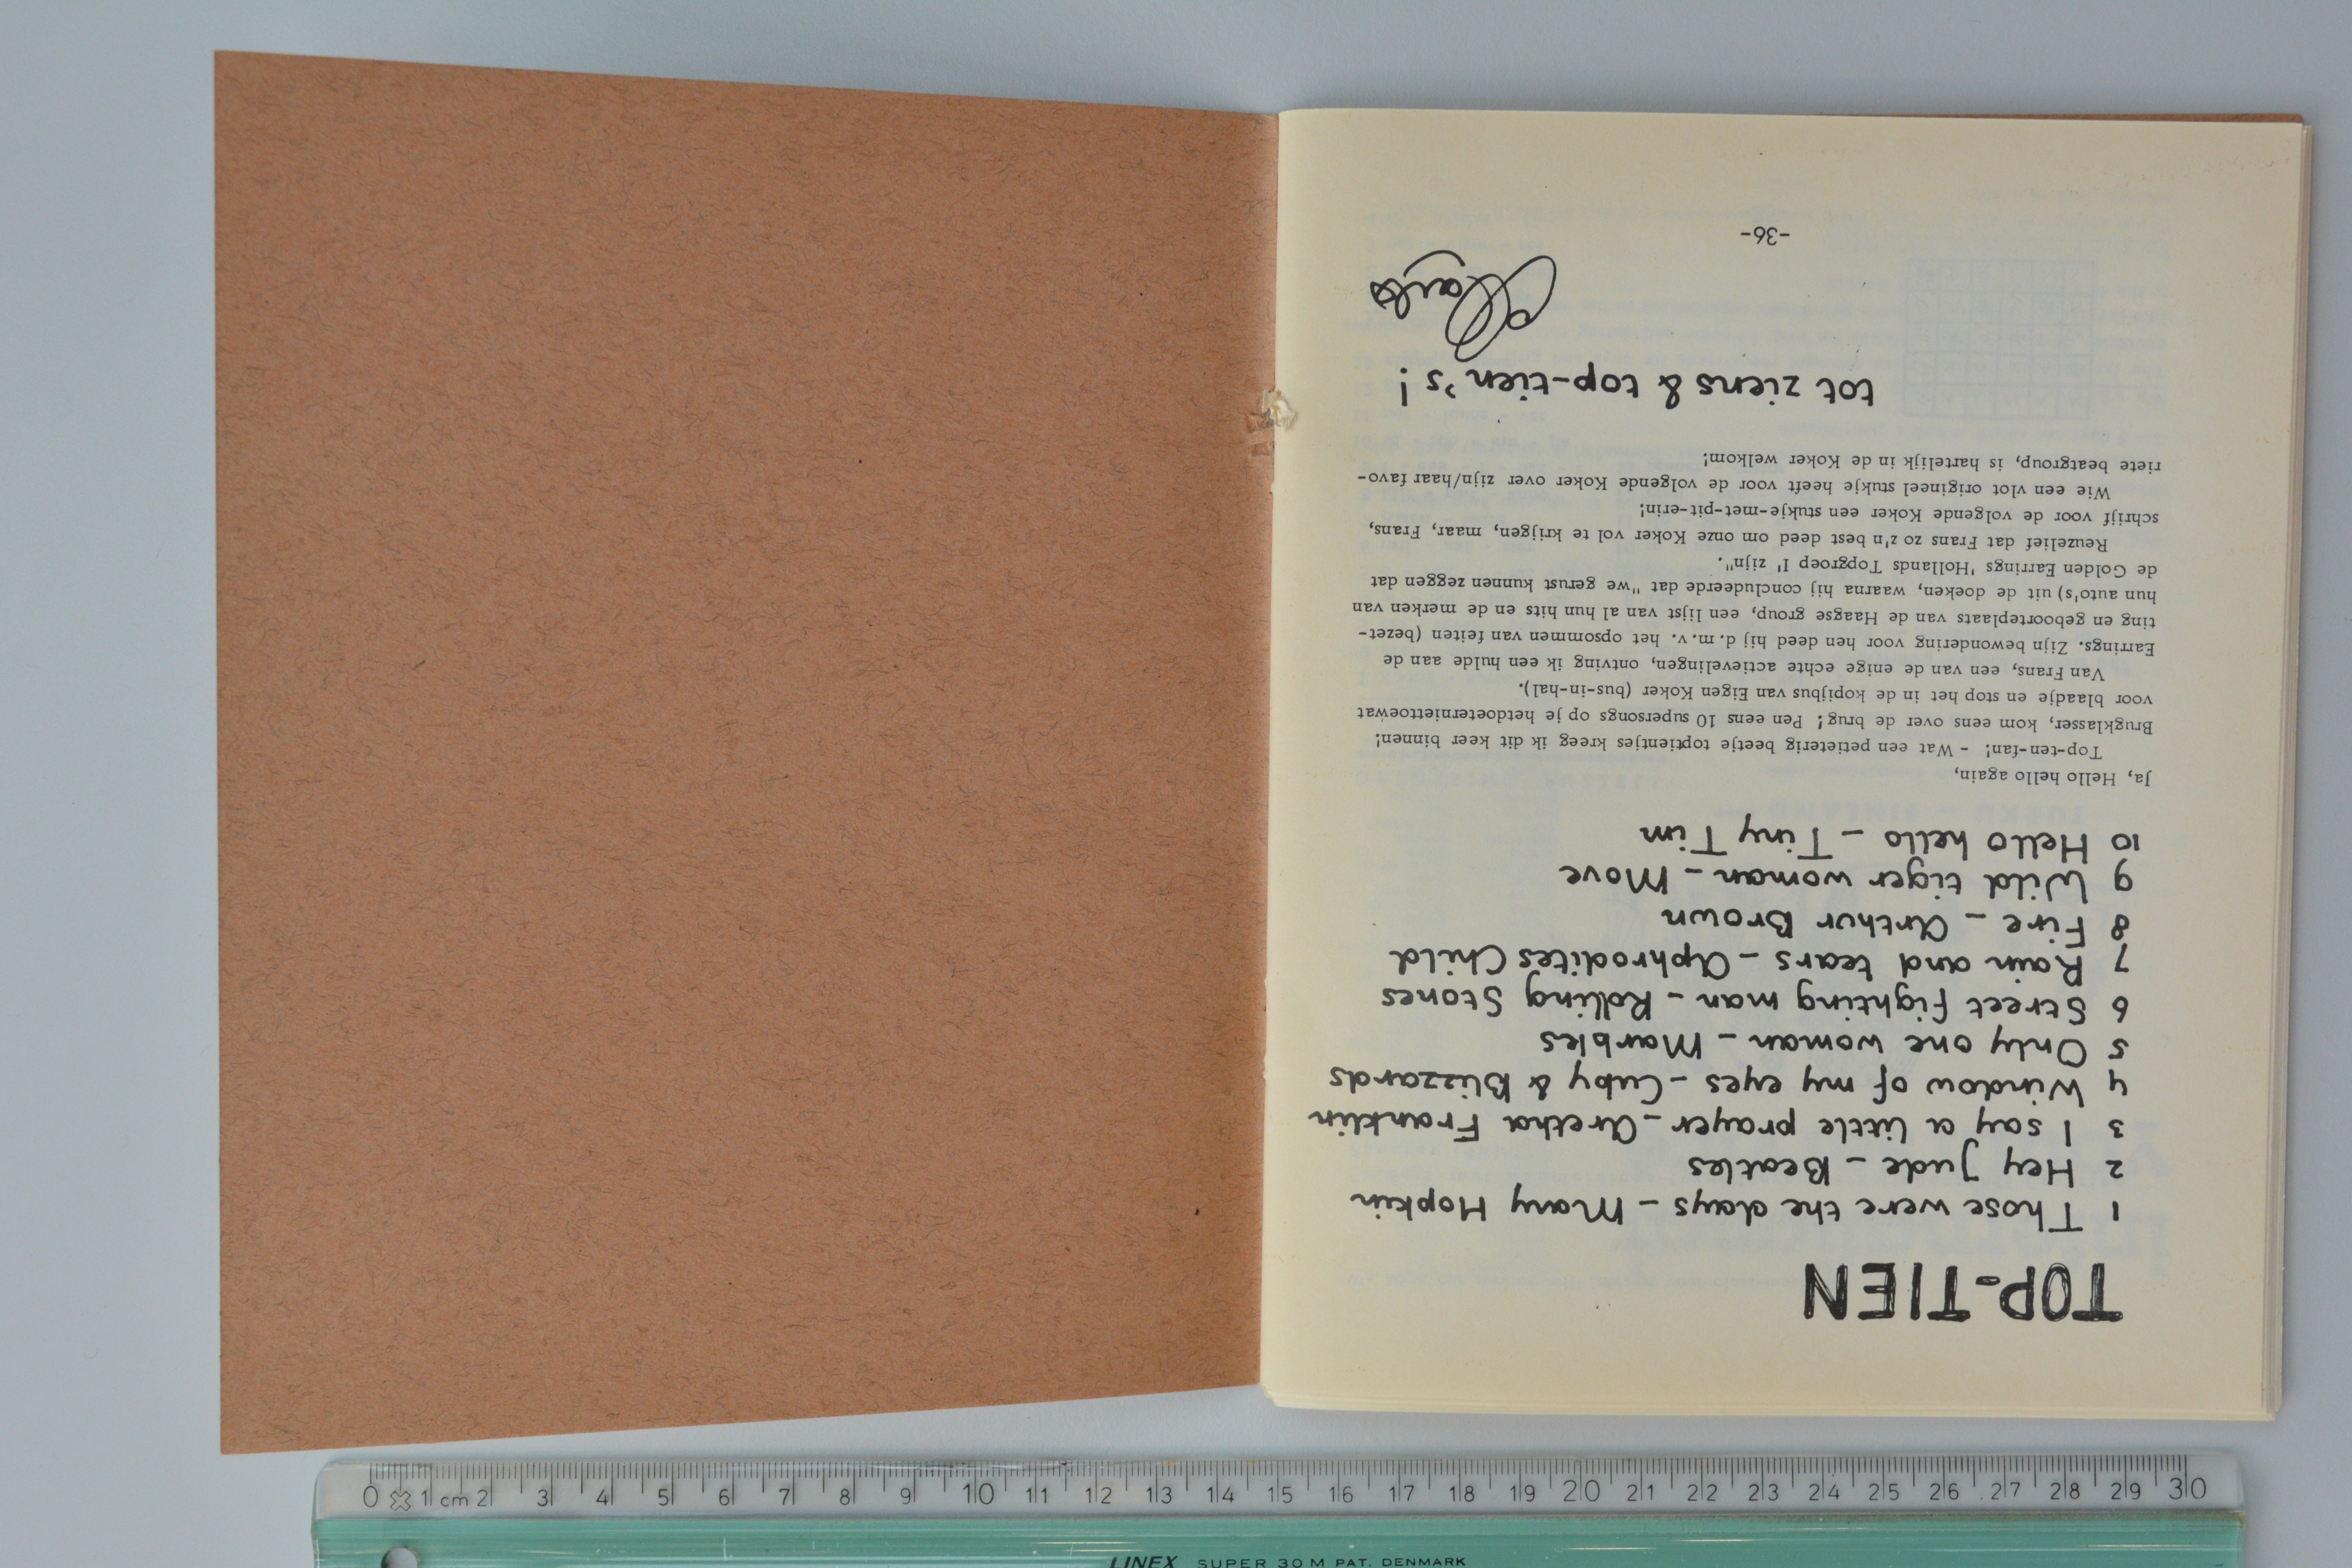 TOP-TIEN
1 Those were the days - Mary Hopkin
2 Hey Jude - Beatles
3 I say a little prayer - Aretha Franklin
4 Window of my eyes - Cuby & Blizzards
5 Only one woman - Marbles
6 Street fighting man - Rolling Stones
7 Rain and tears - Aphrodites Child
8 Fire - Arthur Brown
9 Wild tiger woman - Move
10 Hello hello - Tiny Tim
Ja, Hello hello again,
Top-ten-fan! - Wat een petieterig beetje toptientjes kreeg ik dit keer binnen!
Brugklasser, kom eens over de brug! Pen eens 10 supersongs op je hetdoeterniettoewat
voor blaadje en stop het in de kopijbus van Eigen Koker (bus-in-hal).
Van Frans, een van de enige echte actievelingen, ontving ik een hulde aan de
Earrings. Zijn bewondering voor hen deed hij d.m.v. het opsommen van feiten (bezet-
ting en geboorteplaats van de Haagse group, een lijst van al hun hits en de merken van
hun auto's) uit de doeken, waarna hij concludeerde dat "we gerust kunnen zeggen dat
de Golden Earrings 'Hollands Topgroep I' zijn".
Reuzelief dat Frans zo z'n best deed om onze Koker vol te krijgen, maar, Frans,
schrijf voor de volgende Koker een stukje-met-pit-erin!
Wie een vlot origineel stukje heeft voor de volgende Koker over zijn/haar favo-
riete beatgroup, is hartelijk in de Koker welkom!
tot ziens & top-tien's!
-36-
0 1 cm 2 3 4 5 6 7 8 9 10 11 12 13 14 15 16 17 18 19 20 21 22 23 24 25 26 27 28 29 30
LINEX SUPER 30 M PAT. DENMARK